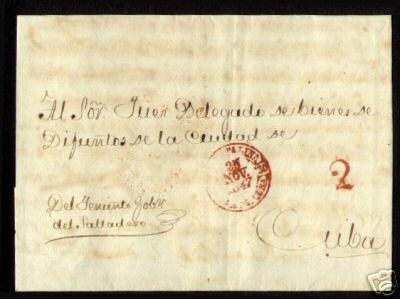 Al Sõr Juez Delegado de bienes de
Difuntos de la Ciudad de
25
NOV.
1847
2
Del Teniente Gobr
del Saltadero
Cuba